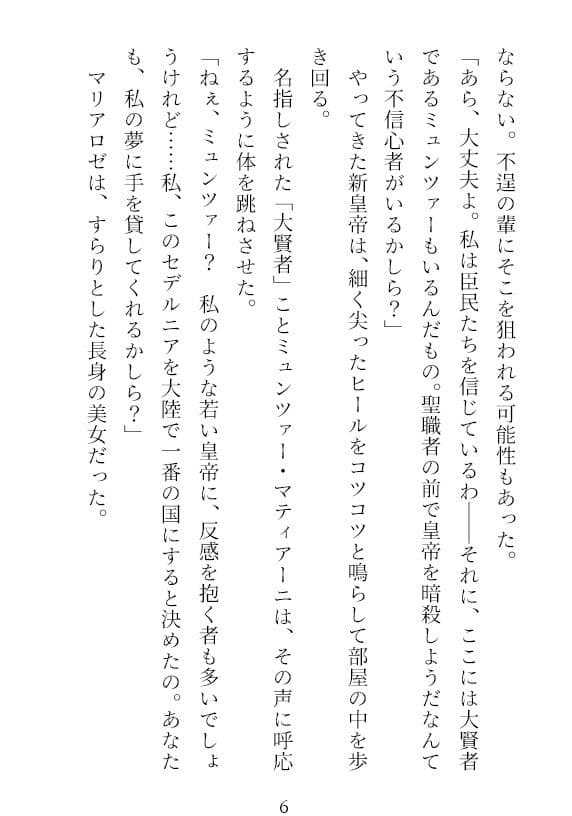 ならない。不逞の輩にそこを狙われる可能性もあった。
「あら、大丈夫よ。私は臣民たちを信じているわ――それに、ここには大賢者
であるミュンツァーもいるんだもの。聖職者の前で皇帝を暗殺しようだなんて
いう不信心者がいるかしら？」
　やってきた新皇帝は、細く尖ったヒールをコツコツと鳴らして部屋の中を歩
き回る。
　名指しされた「大賢者」ことミュンツァー・マティアーニは、その声に呼応
するように体を跳ねさせた。
「ねぇ、ミュンツァー？　私のような若い皇帝に、反感を抱く者も多いでしょ
うけれど……私、このセデルニアを大陸で一番の国にすると決めたの。あなた
も、私の夢に手を貸してくれるかしら？」
　マリアロゼは、すらりとした長身の美女だった。
6